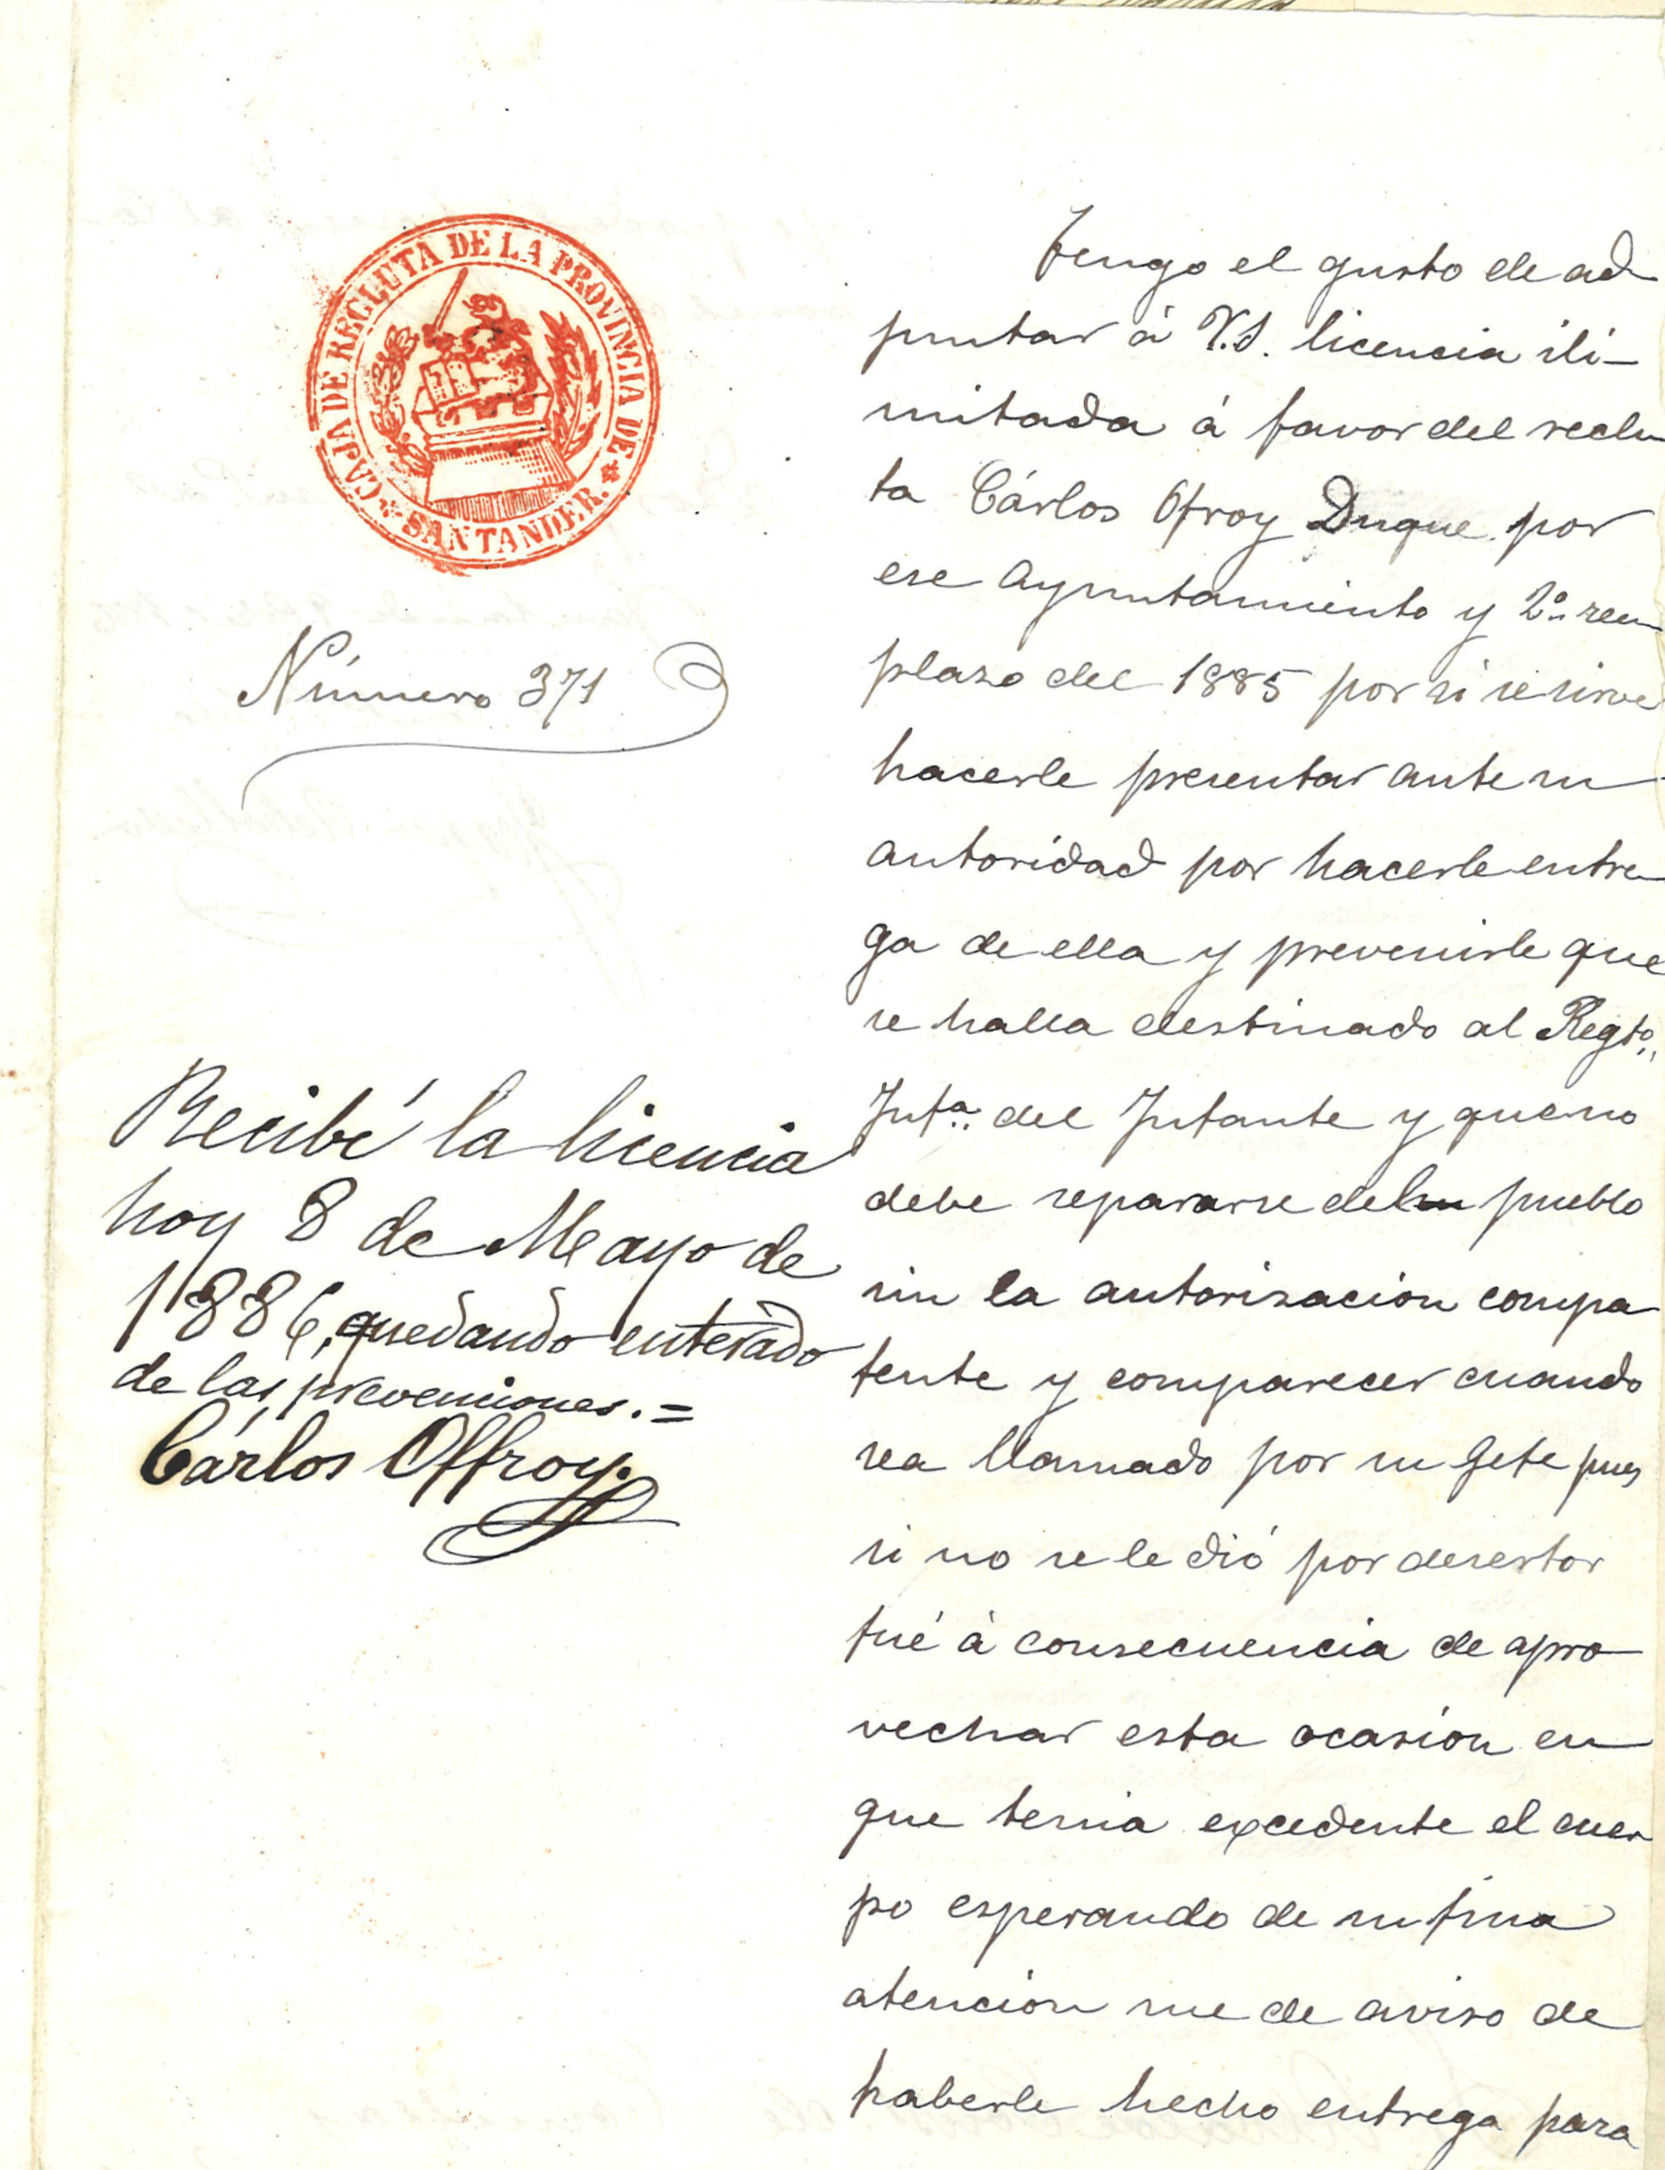 CAJA DE RECLUTA DE LA PROVINCIA DE
SANTANDER.
Número 371
Recibí la licencia
hoy 8 de Mayo de
1886, quedando enterado
de las prevenciones. =
Cárlos Offroy.
Tengo el gusto de ad
puntar á V.S. licencia ili-
mitada á favor del reclu
ta Cárlos Ofroy Duque por
ese Ayuntamiento y 2º reem
plazo del 1885 por si se sirve
hacerle presentar ante su
autoridad por hacerle entre
ga de ella y prevenirle que
se halla destinado al Regto.
Infª. del Infante y que no
debe separarse del pueblo
sin la autorisacion compa
tente y comparecer cuando
sea llamado por su Gefe pues
si no se le dió por desertor
fué á consecuencia de apro
vechar esta ocasion en
que tenia excedente el cuer
po esperando de su fina
atencion me de aviso de
haberle hecho entrega para